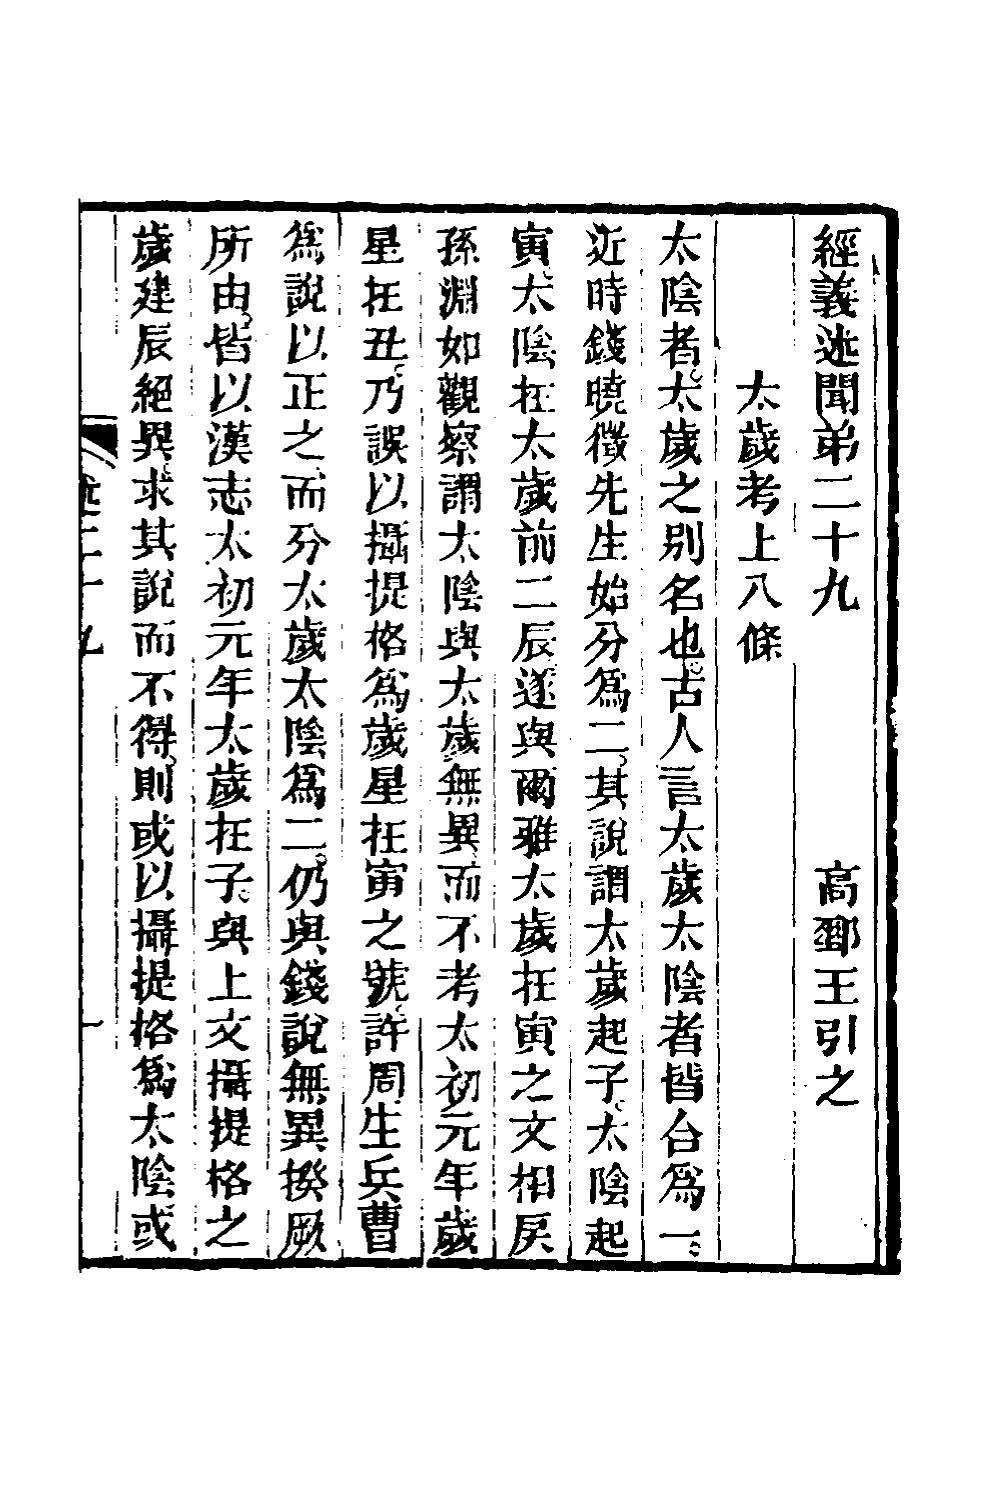 經義述聞弟二十九　高郵王引之
太歲考上八條
太陰者太歲之別名也古人言太歲太陰者皆合為一
近時錢曉徵先生始分為二其說謂太歲起子太陰起
寅太陰在太歲前二辰遂與爾雅太歲在寅之文相戾
孫淵如觀察謂太陰與太歲無異而不考太初元年歲
星在丑乃誤以攝提格為歲星在寅之號許周生兵曹
為說以正之而分太歲太陰為二仍與錢說無異揆厥
所由皆以漢志太初元年太歲在子與上文攝提格之
歲建辰絕異求其說而不得則或以攝提格為太陰或
一